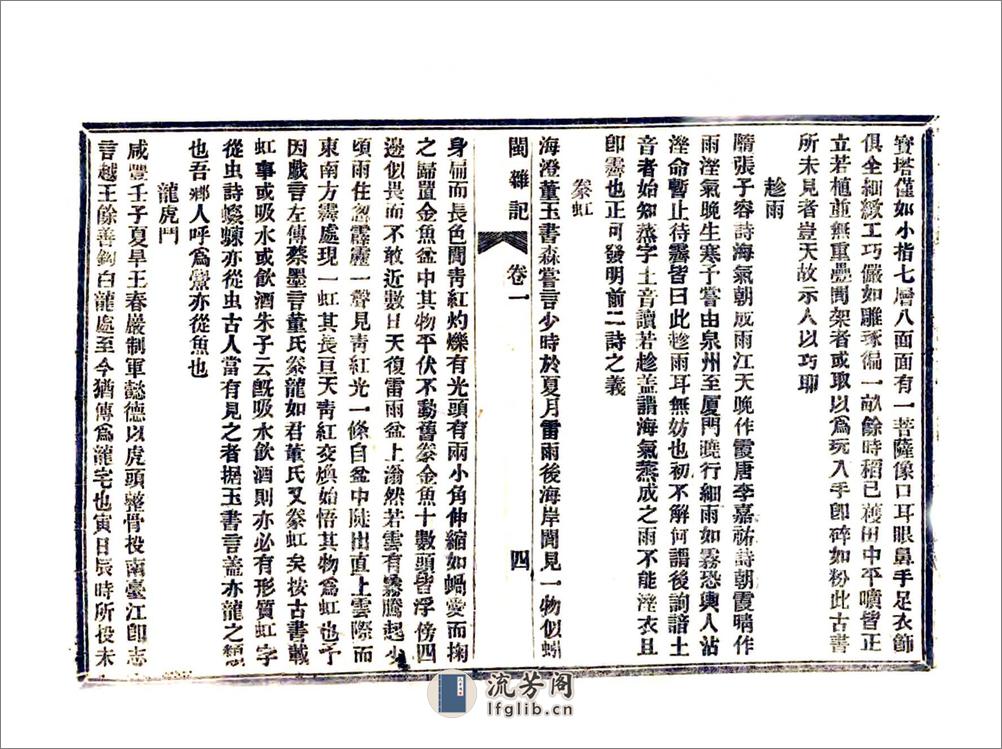 寶塔僅如小指七層八面面有一菩薩像口耳眼鼻手足衣飾
俱全細緻工巧儼如雕琢徧一畝餘時稻已穫田中平曠皆正
立若植並無重疊間架者或取以爲玩入手卽碎如粉此古書
所未見者豈天故示人以巧耶
趁雨
隋張子容詩海氣朝成雨江天晚作霞唐李嘉祐詩朝霞晴作
雨溼氣晚生寒予嘗由泉州至厦門曉行細雨如霧恐輿人沾
溼命暫止待霽皆曰此趁雨耳無妨也初不解何謂後詢諳土
音者始知蒸字土音讀若趁蓋謂海氣蒸成之雨不能溼衣且
卽霽也正可發明前二詩之義
豢虹
海澄董玉書森嘗言少時於夏月雷雨後海岸閒見一物似蜥
閩雜記
卷一
四
身扁而長色閒靑紅灼爍有光頭有兩小角伸縮如蝸愛而掬
之歸置金魚盆中其物平伏不動舊豢金魚十數頭皆浮傍四
邊似畏而不敢近數日天復雷雨盆上滃然若雲有霧騰起少
頃雨住忽霹靂一聲見靑紅光一條自盆中陡出直上雲際而
東南方霽處現一虹其長亘天靑紅交煥始悟其物爲虹也予
因戲言左傳蔡墨言董氏豢龍如君董氏又豢虹矣按古書載
虹事或吸水或飮酒朱子云旣吸水飮酒則亦必有形質虹字
從虫詩蝃蝀亦從虫古人當有見之者据玉書言蓋亦龍之類
也吾鄉人呼爲鱟亦從魚也
龍虎鬥
咸豐壬子夏旱王春巖制軍懿德以虎頭整骨投南臺江卽志
言越王餘善釣白龍處至今猶傳爲龍宅也寅日辰時所投未
流芳阁
lfglib.cn